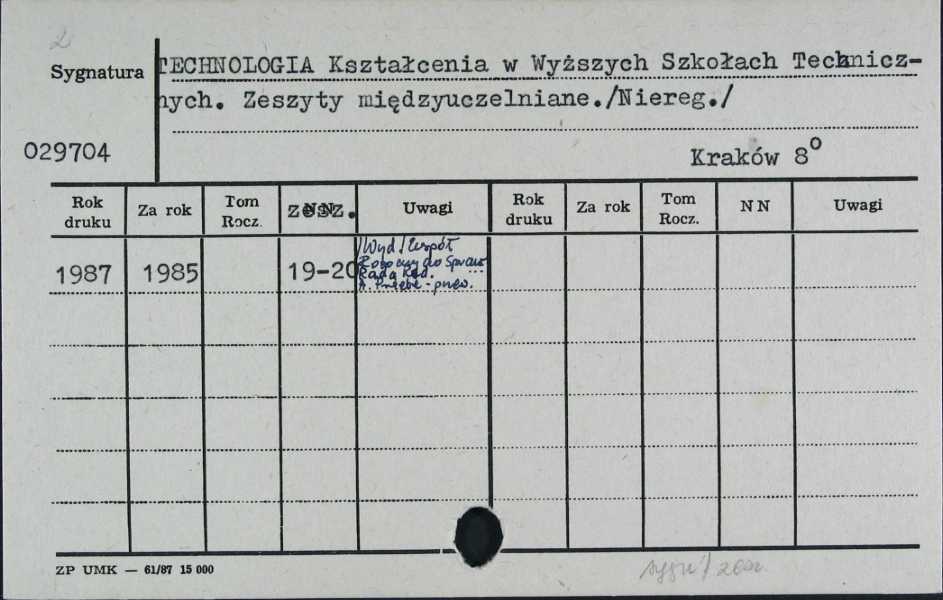 2
Sygnatura TECHNOLOGIA Kształcenia w Wyższych Szkołach Technicz-
nych. Zeszyty międzyuczelniane./Niereg./
029704 Kraków 8°
Rok druku Za rok Tom Rocz. zesz. Uwagi Rok druku Za rok Tom Rocz. NN Uwagi
1987 1985 19-20 /Wyd./ Zespół
Roboczy do Spraw...
Rada Red.
ZP UMK — 61/87 15 000